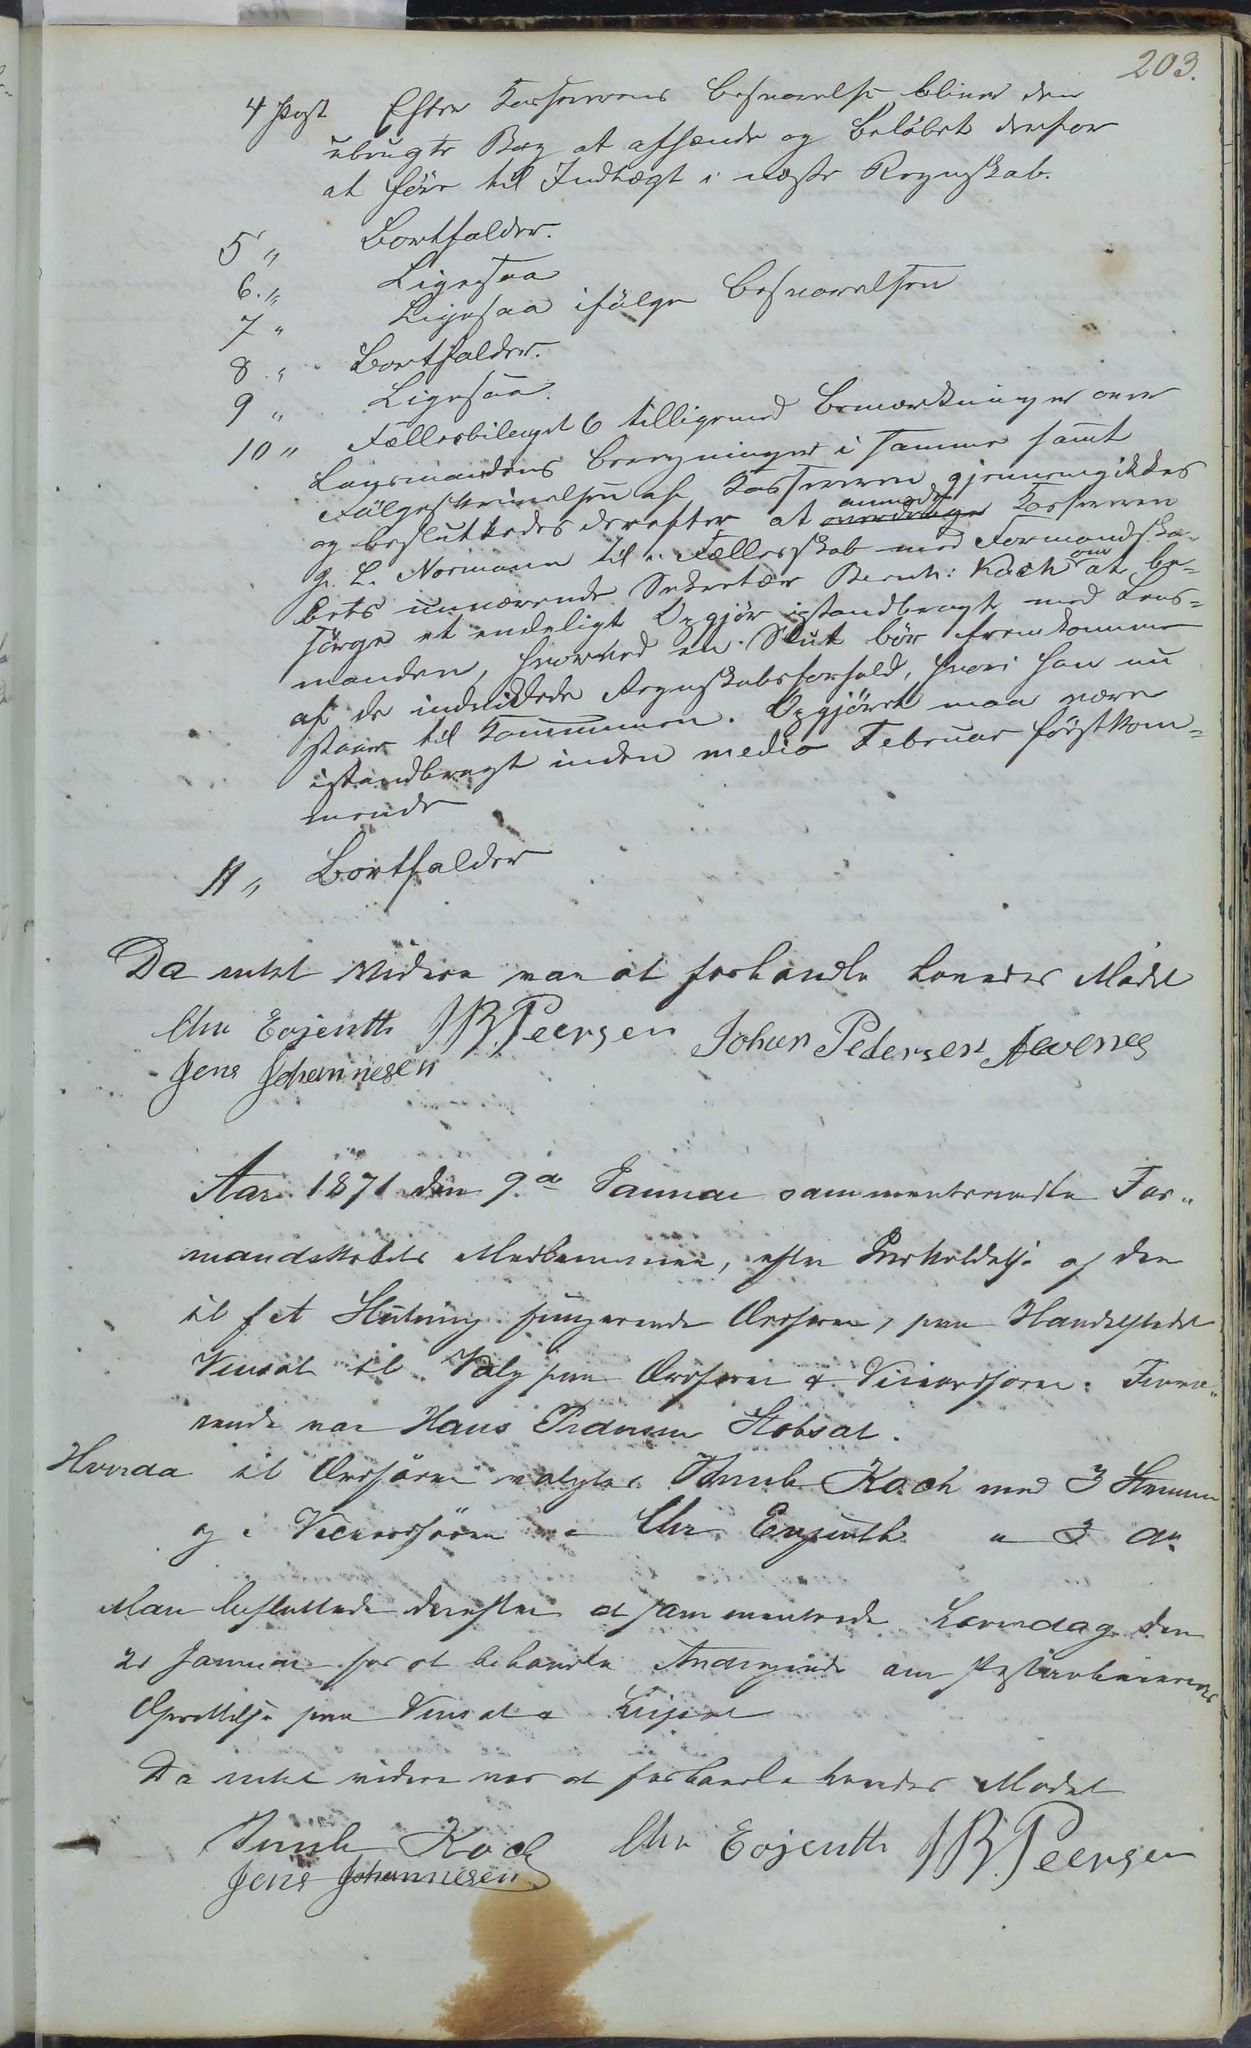 203.
4 Post Efter Kassererens Besvarelse bliver den
ubrugte Bog at afsende og Beløbet derfor
at føre til Indtægt i næste Regnskab.
5 " Bortfalder.
6. " Ligesaa
7 " Ligesaa ifølge Besvarelsen
8 " Bortfalder.
9 " Ligesaa.
10 " Fællesbilaget 6 tilligemed Bemærkninger over
Lensmandens Beregninger i samme samt
Følgeskrivelsen af Kassereren gjennemgikkes
og besluttedes derefter at anmode Kassereren
J. L. Normann til i Fællesskab med Formandska-
bets nuværende Sekretær Bernh: Koch om at be-
sørge et endeligt Opgjør istandbragt med Lens-
manden, hvorved en Slut bør fremkomme
af de indviklede Regnskabsforhold, hvori han nu
staar til Kommunen. Opgjøret maa være
istandbragt inden medio Februar førstkom-
mende
11 " Bortfalder
Da intet videre var at forhandle hævedes Mødet
Chr Evjenth JB. Peersen Johan Pedersen
Jens Johannesen
Aar 1871 den 9.de Januar sammentraadte For-
mandskabets Medlemmer, efter af den
til fungerende Ordfører, paa Handelstedet
til Valg paa Ordfører & Viceordfører.
rende var Hans Pedersen
Hvorda til Ordfører valgtes Bernh Koch med 3 Stemmer
og " Viceordfører " Chr Evjenth " 3 do
Man besluttede derefter at sammentræde Løverdag den
21 Januar for at behandle Andragende om
Oprettelse paa &
Da intet videre var at forhandle hævedes Mødet
Bernh Koch Chr Evjenth JB. Peersen
Jens Johannesen